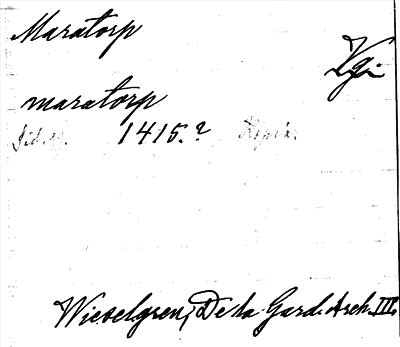 Maratorp
Vgi
maratorp
Sid. 1415.? Kopia.
Wieselgren, De la Gard. Arch. III.